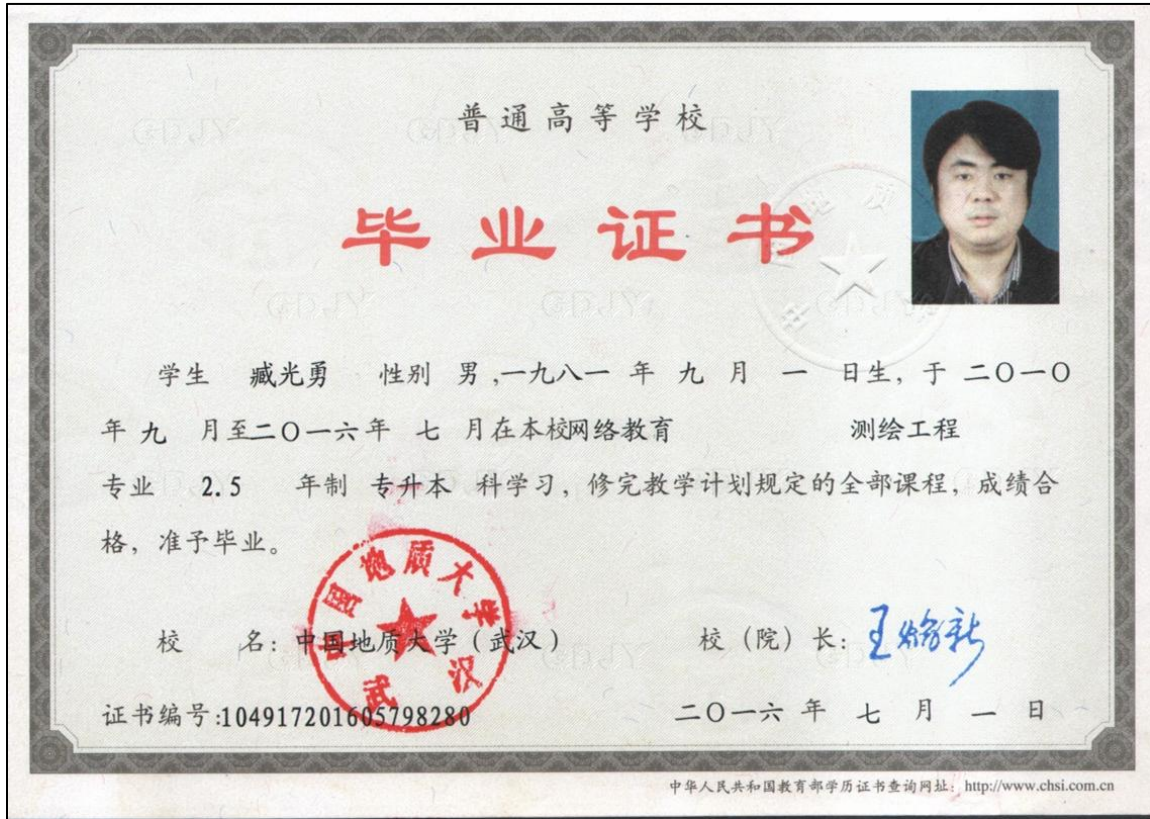 普通高等学校
毕业证书
学生 臧光勇 性别 男,一九八一 年 九 月 一 日生, 于 二〇一〇
年 九 月至二〇一六年 七 月在本校网络教育 测绘工程
专业 2.5 年制 专升本 科学习, 修完教学计划规定的全部课程, 成绩合
格, 准予毕业。
中国地质大学
武汉
校 名: 中国地质大学 (武汉) 校 (院) 长:
证书编号:104917201605798280 二〇一六 年 七 月 一 日
中华人民共和国教育部学历证书查询网址: http://www.chsi.com.cn